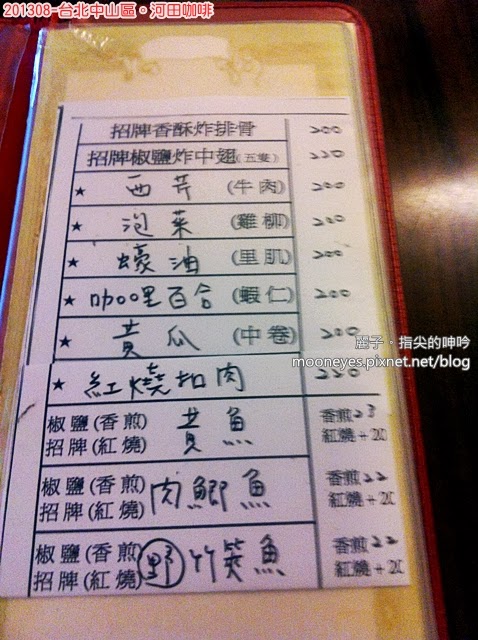 201308-台北中山區。河田咖啡
招牌香酥炸排骨 200
招牌椒鹽炸中翅(五隻) 220
★ 西芹 (牛肉) 200
★ 泡菜 (雞柳) 200
★ 蠔油 (里肌) 200
★ 咖哩百合 (蝦仁) 200
★ 黃瓜 (中卷) 200
麗子。指尖的呻吟
mooneyes.pixnet.net/blog
★ 紅燒扣肉 220
椒鹽(香煎) 黃魚 香煎23
招牌(紅燒) 紅燒+20
椒鹽(香煎) 肉鯽魚 香煎22
招牌(紅燒) 紅燒+20
椒鹽(香煎) 野竹筴魚 香煎22
招牌(紅燒) 紅燒+20